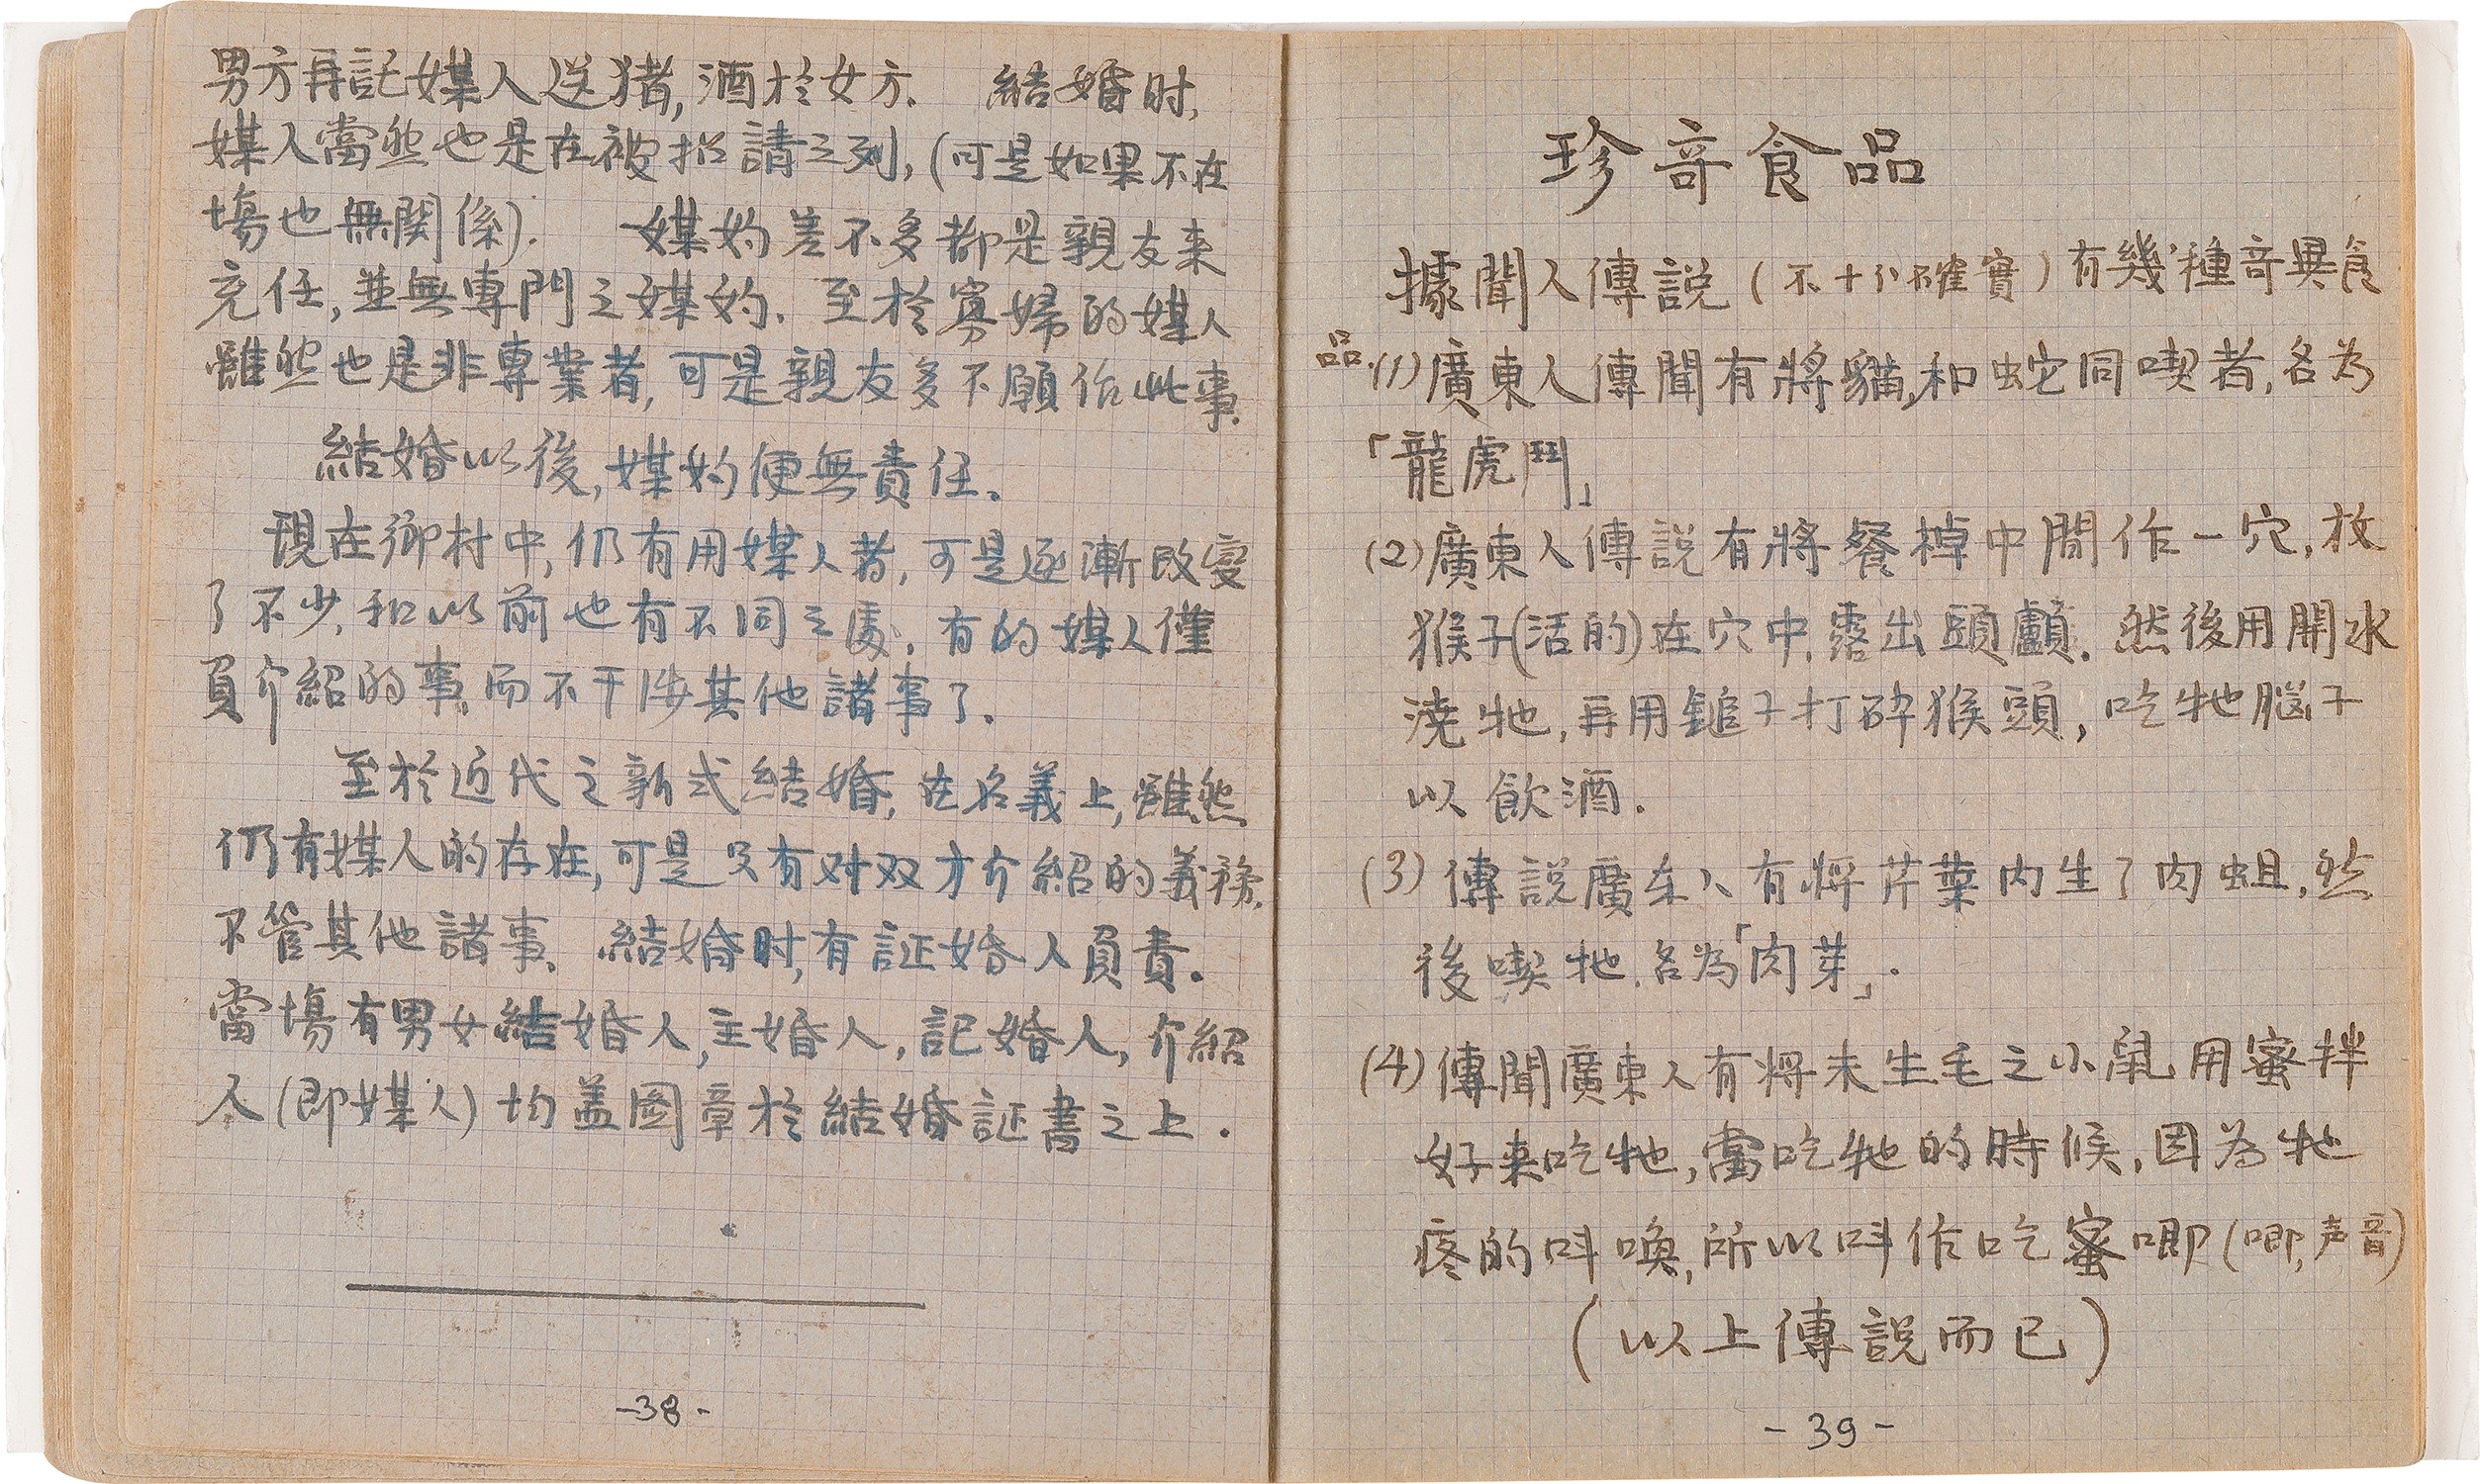 男方再託媒人送猪,酒於女方. 結婚时,
媒人當然也是在被招請之列,(可是如果不在
場也無関係). 媒妁差不多都是親友来
充任,並無專門之媒妁. 至於寡婦的媒人
雖然也是非專業者,可是親友多不願作此事.
結婚以後,媒妁便無責任.
現在鄉村中,仍有用媒人者,可是逐漸改变
了不少,和以前也有不同之處,有的媒人僅
負介紹的事,而不干涉其他諸事了.
至於近代之新式結婚,在名義上,雖然
仍有媒人的存在,可是只有对双方介紹的義務.
不管其他諸事、結婚时,有証婚人負責.
當場有男女結婚人,主婚人,記婚人,介紹
人(即媒人)均盖圖章於結婚証書之上.
-38-
珍奇食品
據聞人傳説(不十分確實)有幾種奇異食
品.(1)廣東人傳聞有將貓,和蛇同喫者,名為
「龍虎鬥」
(2)廣東人傳説有將餐棹中間作一穴,放
猴子(活的)在穴中,露出頭顱.然後用開水
澆牠,再用鎚子打碎猴頭,吃牠脳子
以飲酒.
(3)傳説廣东人有將芹葉内生了肉蛆,然
後喫牠.名為「肉芽」.
(4)傳聞廣東人有將未生毛之小鼠用蜜拌
好来吃牠,當吃牠的時候,因為牠
疼的呌喚,所以呌作吃蜜唧(唧,声音)
(以上傳説而已)
-39-